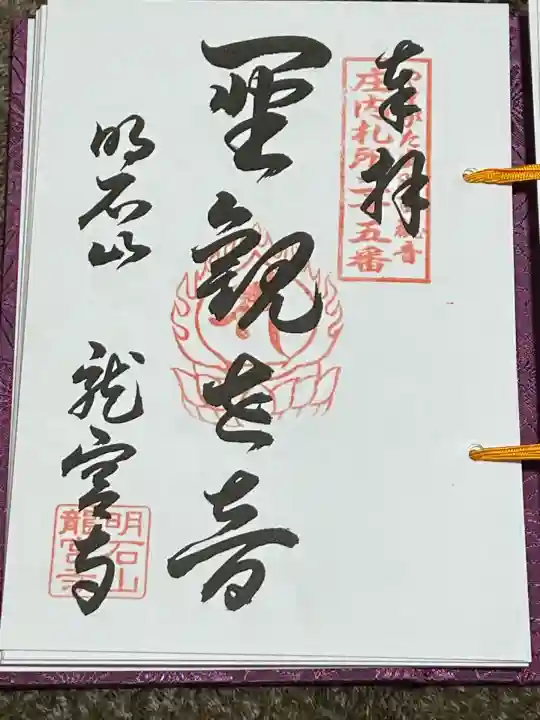 奉拝
庄内札所二十五番
聖観世音
明石山 龍宮寺
明石山
龍宮寺